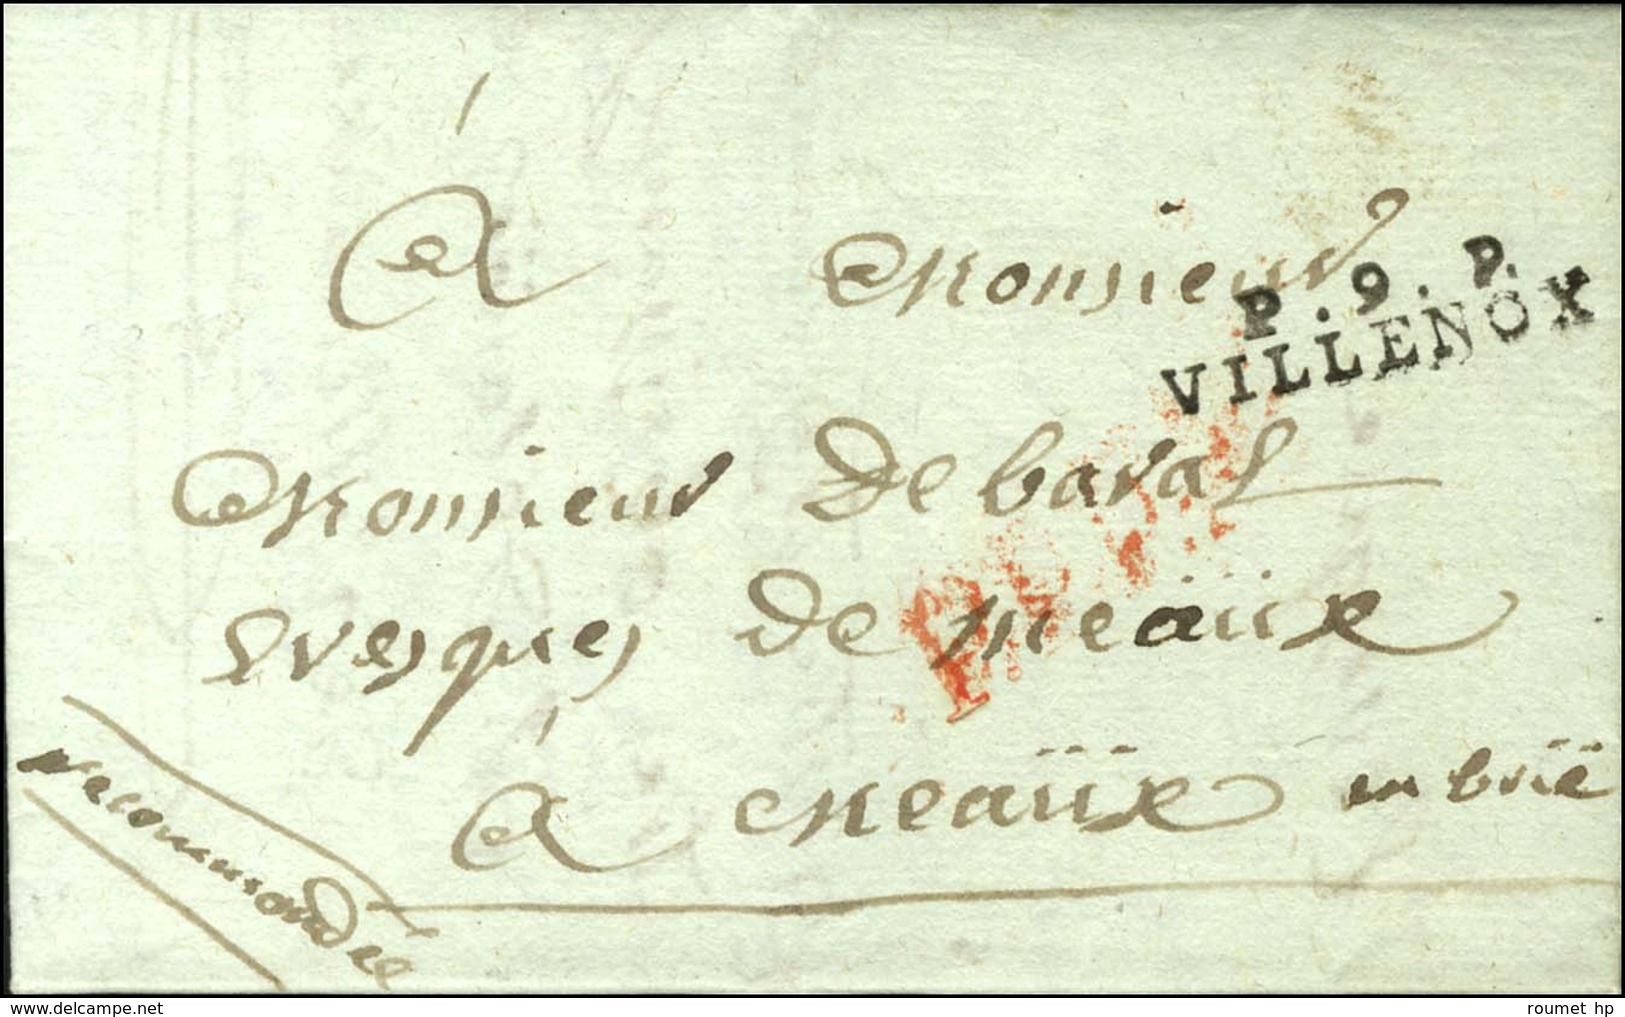 À Monsieur
P.9.P.
VILLENOX
Monsieur De baral
Evesques De meaüx
à Meaüx en brië
recommandée
P.P.P.P.
www.delcampe.net
roumet hp